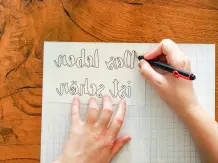 Das Leben
ist schön